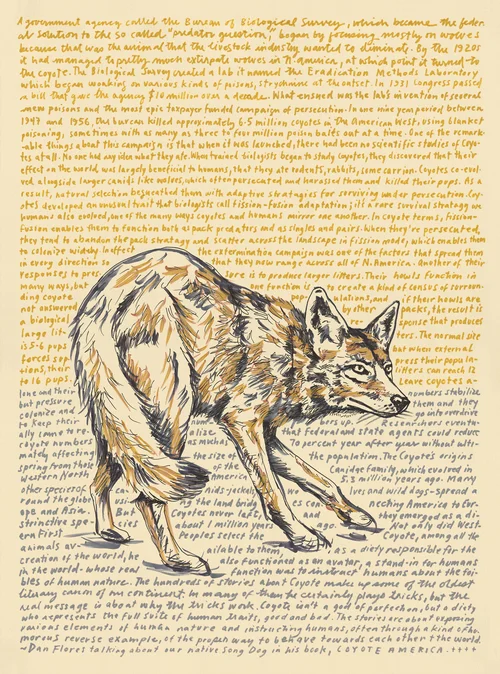 A government agency called the Bureau of Biological Survey, which became the feder-
al solution to the so called "predator question," began by focusing mostly on wolves
because that was the animal that the livestock industry wanted to eliminate. By the 1920s
it had managed to pretty much extirpate wolves in N. America, at which point it turned to
the coyote. The Biological Survey created a lab it named the Eradication Methods Laboratory
which began working on various kinds of poisons, strychnine at the outset. In 1931 Congress passed
a bill that gave the agency $10 million over a decade. What ensued was the lab's invention of several
new poisons and the most epic taxpayer funded campaign of persecution. In one nine year period between
1947 and 1956, this bureau killed approximately 6.5 million coyotes in the American West, using blanket
poisoning, sometimes with as many as three to four million poison baits out at a time. One of the remark-
able things about this campaign is that when it was launched, there had been no scientific studies of coyo-
tes at all. No one had any idea what they ate. When trained biologists began to study coyotes, they discovered that their
effect on the world was largely beneficial to humans, that they ate rodents, rabbits, some carrion. Coyotes co-evol-
ved alongside larger canids like wolves, which often persecuted and harassed them and killed their pups. As a
result, natural selection bequeathed them with adaptive strategies for surviving under persecution. Coy-
otes developed an unusual trait that biologists call fission-fusion adaptation; it's a rare survival strategy we
humans also evolved, one of the many ways coyotes and humans mirror one another. In coyote terms, fission-
fusion enables them to function both as pack predators and as singles and pairs. When they're persecuted,
they tend to abandon the pack strategy and scatter across the landscape in fission mode, which enables them
to colonize widely. In effect the extermination campaign was one of the factors that spread them
in every direction so that they now range across all of N. America. Another of their
responses to pres sure is to produce larger litters. Their howls function in
many ways, but one function is to create a kind of census of surroun-
ding coyote pop ulations, and if their howls are
not answered by other packs, the result is
a biological re sponse that produces
large lit- ters. The normal size
is 5-6 pups but when external
forces sup press their popula-
tions, their litters can reach 12
to 16 pups. Leave coyotes a-
lone and their numbers stabilize
but pressure them and they
colonize and go into overdrive
to keep their numbers up. Researchers eventu-
ally came to realize that federal and state agents could reduce
coyote numbers as much as 70 percent year after year without ulti-
mately affecting the size of the population. The Coyote's origins
spring from those of the Canidae family, which evolved in
Western North America 5.3 million years ago. Many
other species of ca- nids - jackals wo lves and wild dogs - spread a
round the globe us ing the land bridg es con necting America to Eur-
ope and Asia. But Coyotes never left, and they emerged as a di-
stinctive spe cies about 1 million years ago. Not only did West-
ern First Peoples select the Coyote, among all the
animals av- ailable to them, as a diety responsible for the
creation of the world, he also functioned as an avatar, a stand-in for humans
in the world - whose real function was to instruct humans about the foi-
bles of human nature. The hundreds of stories about Coyote make up some of the oldest
literary canon of our continent. In many of them he certainly plays tricks, but the
real message is about why the tricks work. Coyote isn't a god of perfection, but a diety
who represents the full suite of human traits, good and bad. The stories are about exposing
various elements of human nature and instructing humans, often through a kind of hu-
morous reverse example, of the proper way to behave towards each other & the world.
~Dan Flores talking about our native Song Dog in his book, COYOTE AMERICA. ++++